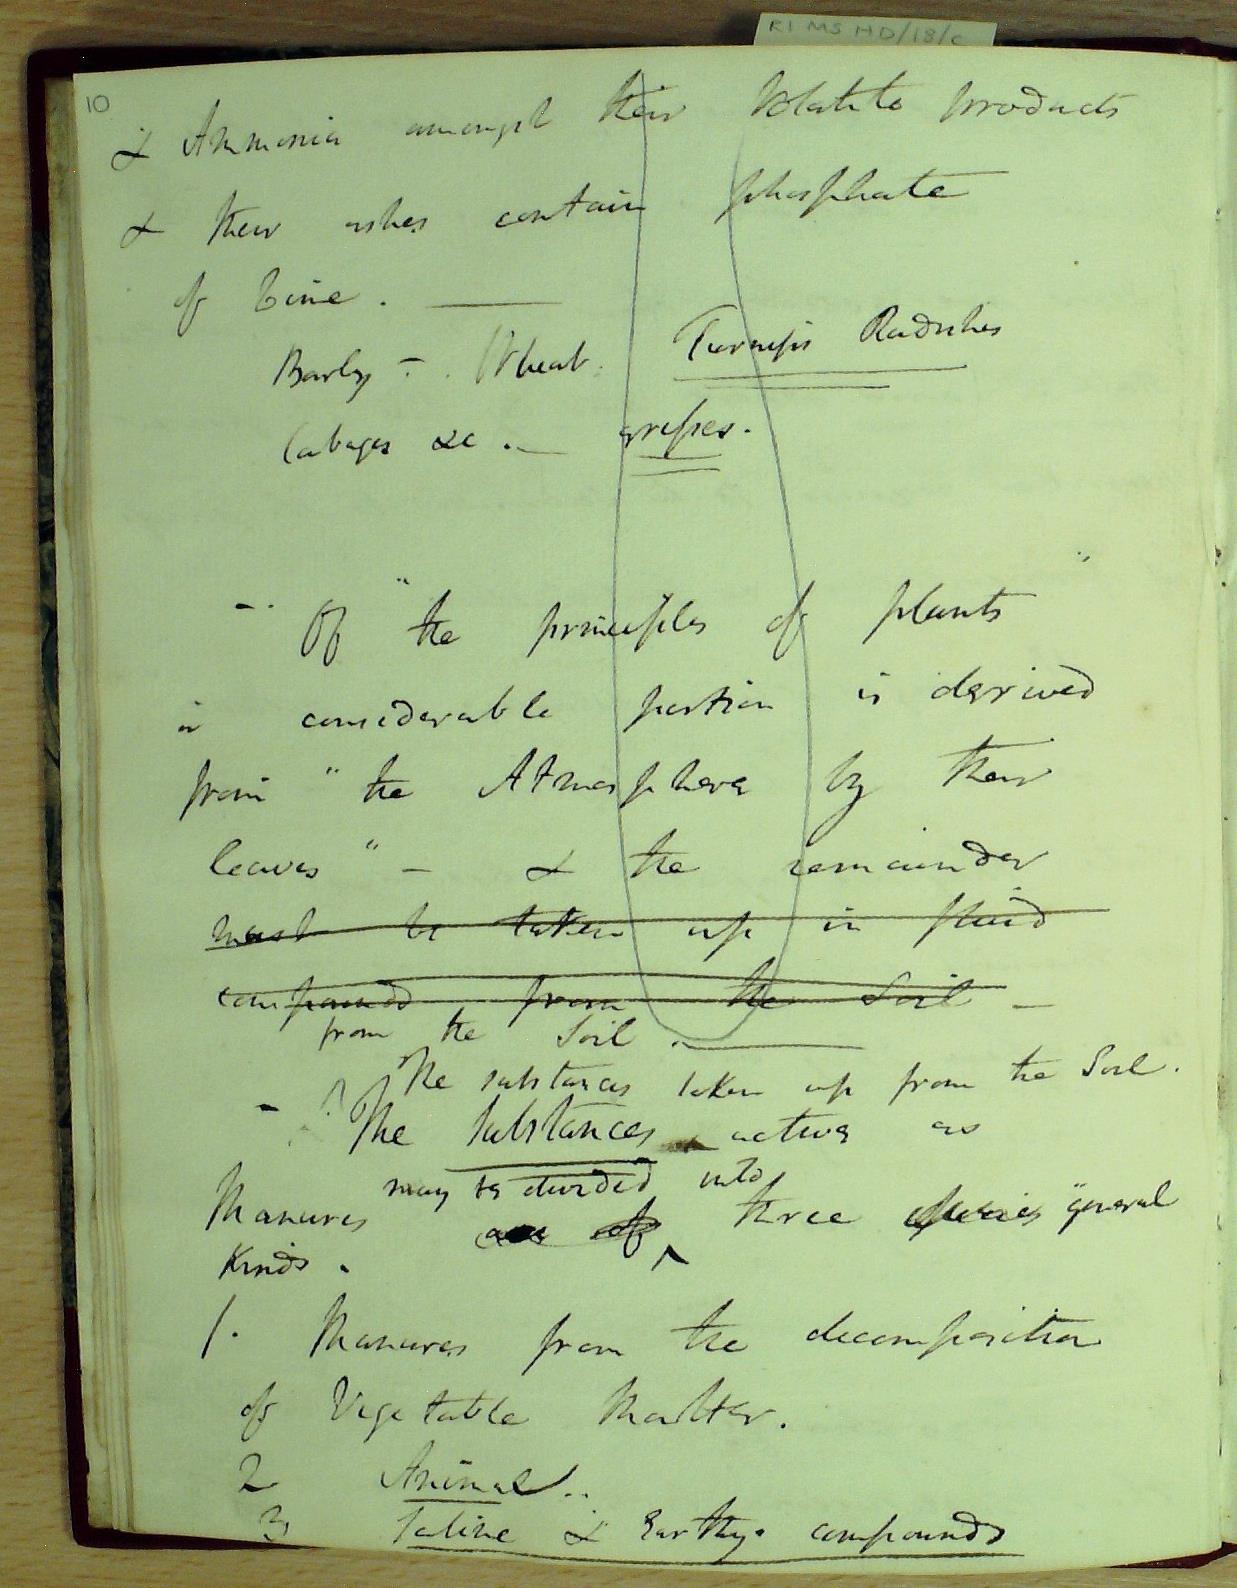 RI MS HD/18/C
10
& Ammonia amongst their Volatile products
& their ashes contain phosphate
of Lime. —
Barley - . Wheat. Turnips Radishes
Cabages &c . — grasses.
- . Of " the principles of plants "
a considerable portion is derived
from " the Atmosphere by their
leaves " - & the remainder
must be taken up in fluid
compounds from the Soil -
from the Soil . —
The substances taken up from the Soil.
- The Substances active as
may be divided into
Manures are of ^ three species general
Kinds .
1. Manures from the decomposition
of Vegetable Matter.
2 Animal ..
3 Saline & Earthy compounds